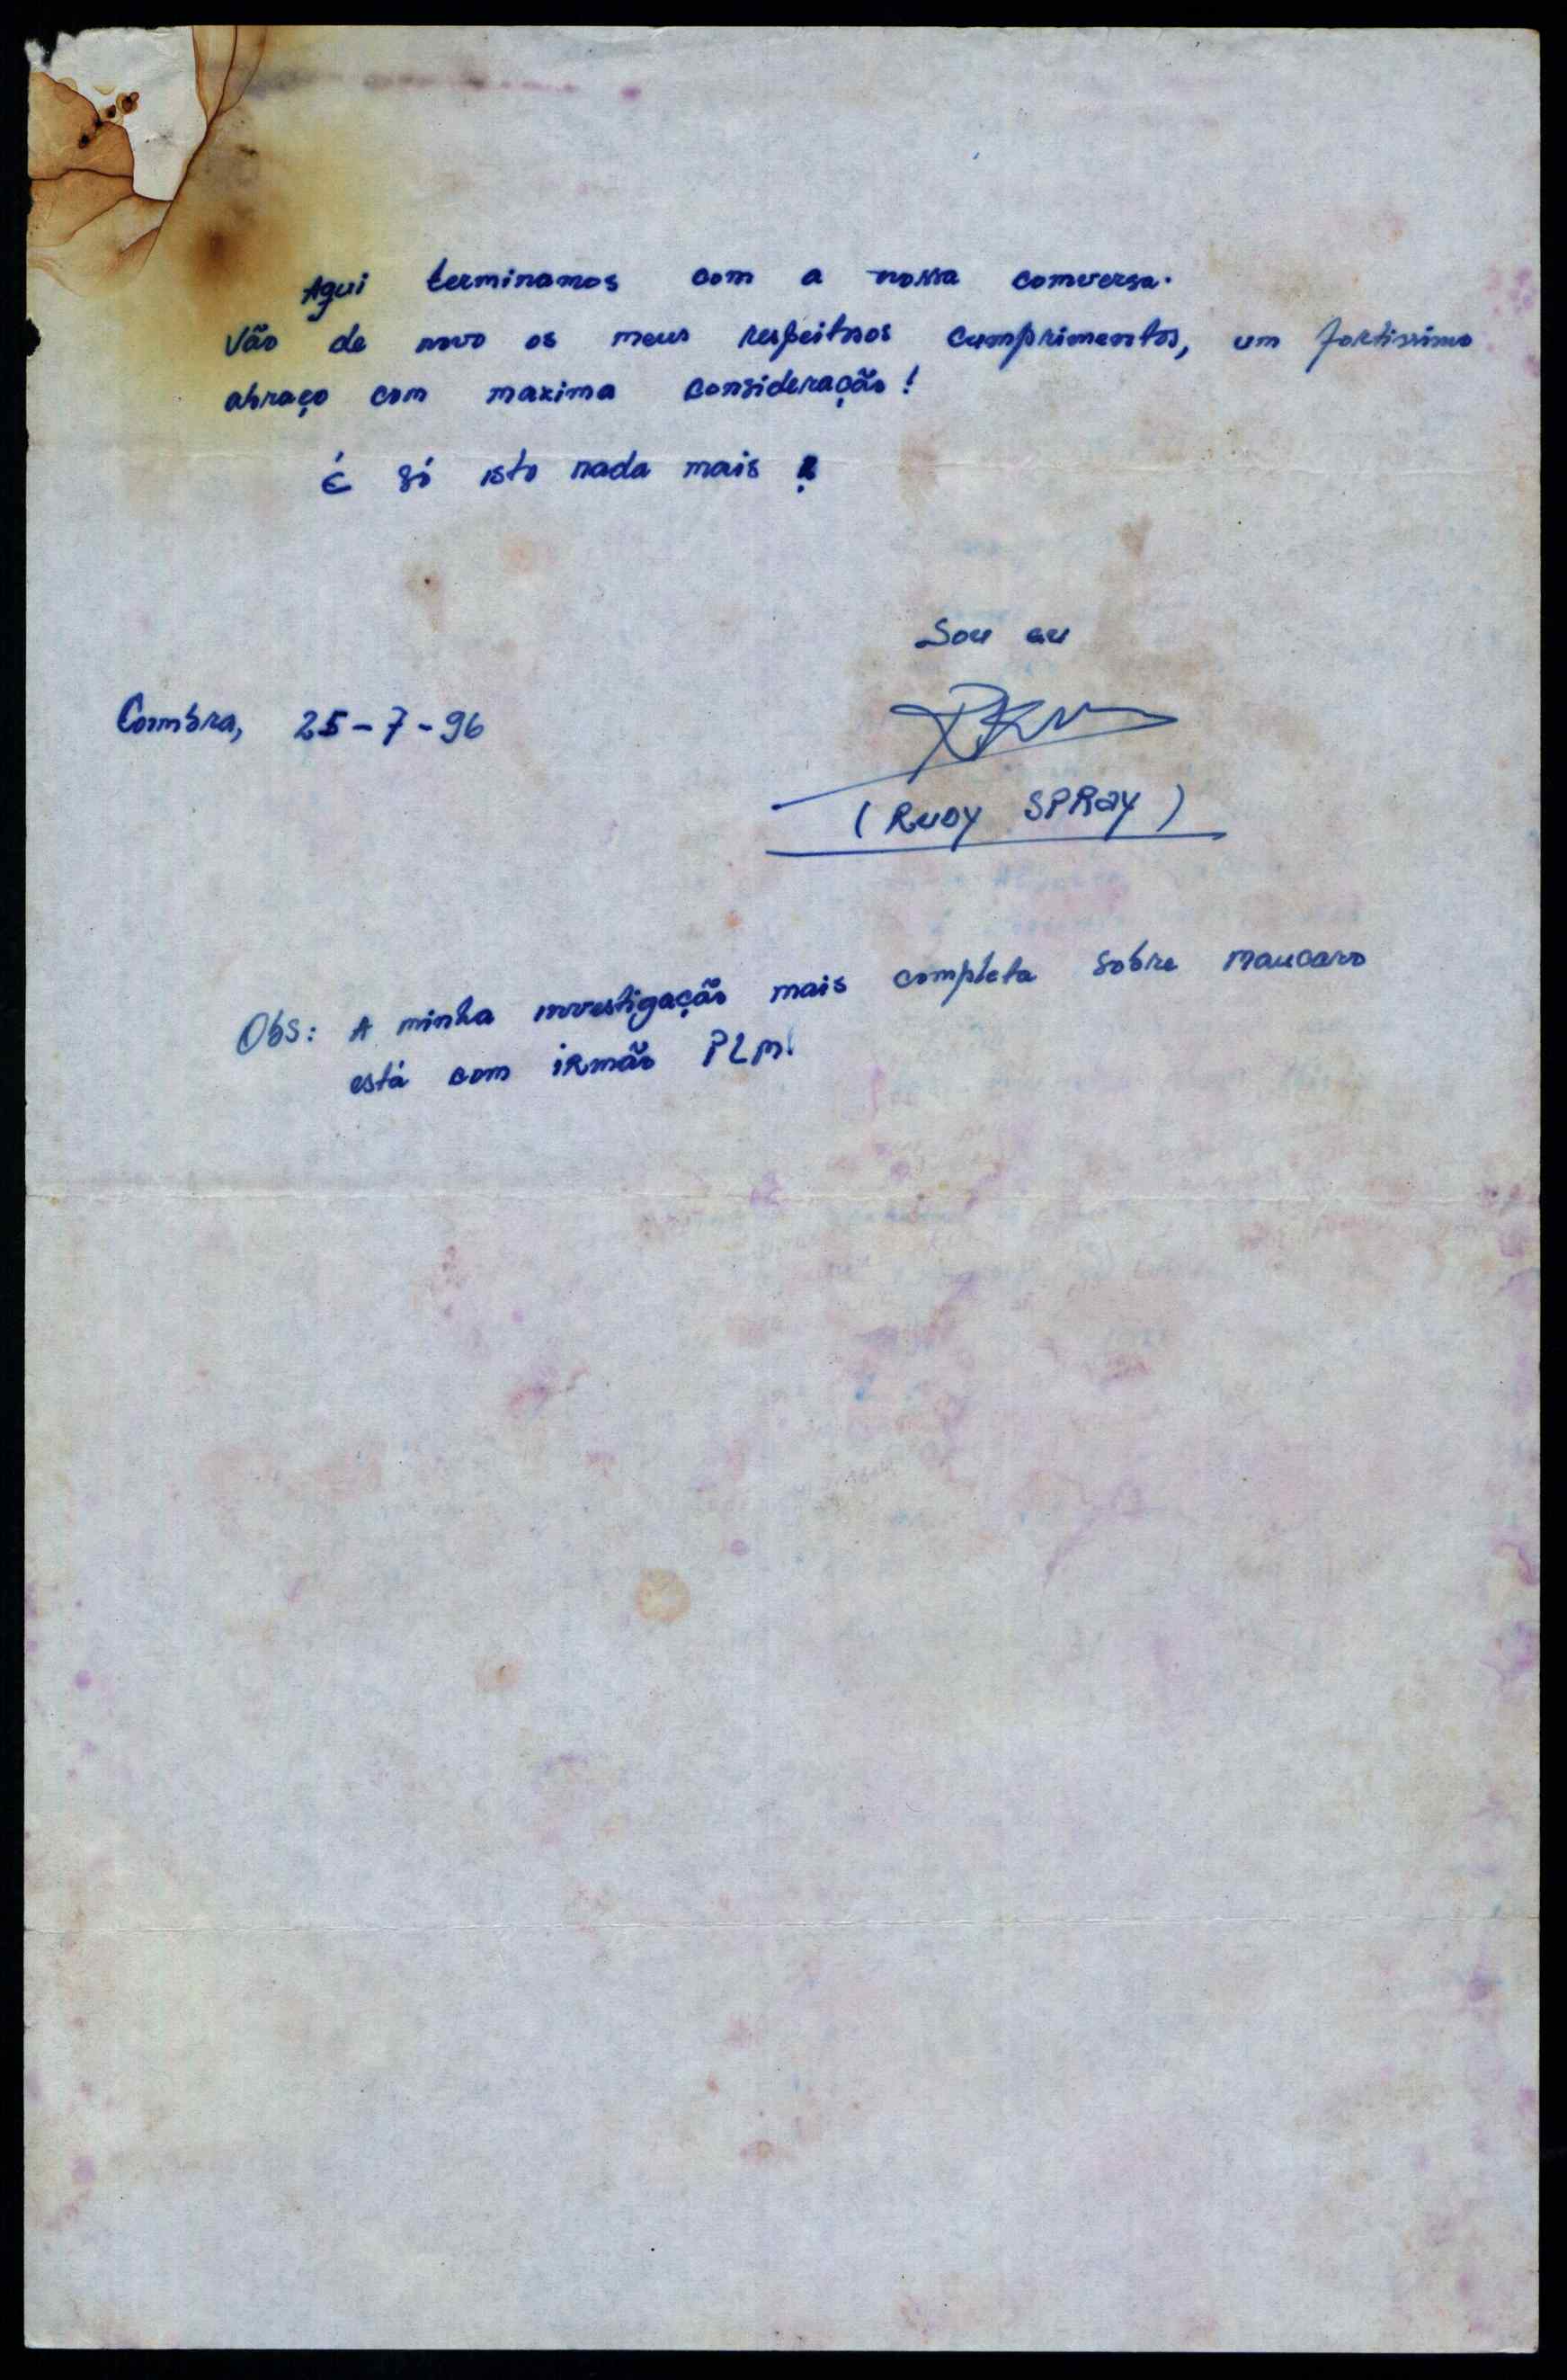 Aqui terminamos com a nossa comversa.
Vão de novo os meus respeitosos cumprimentos, um fortissimo
abraço com maxima consideração!
É só isto nada mais !
Sou eu
Coimbra, 25-7-96
(RUDY SPRay)
Obs: A minha investigação mais completa sobre maucaro
está com iRmão PLM!